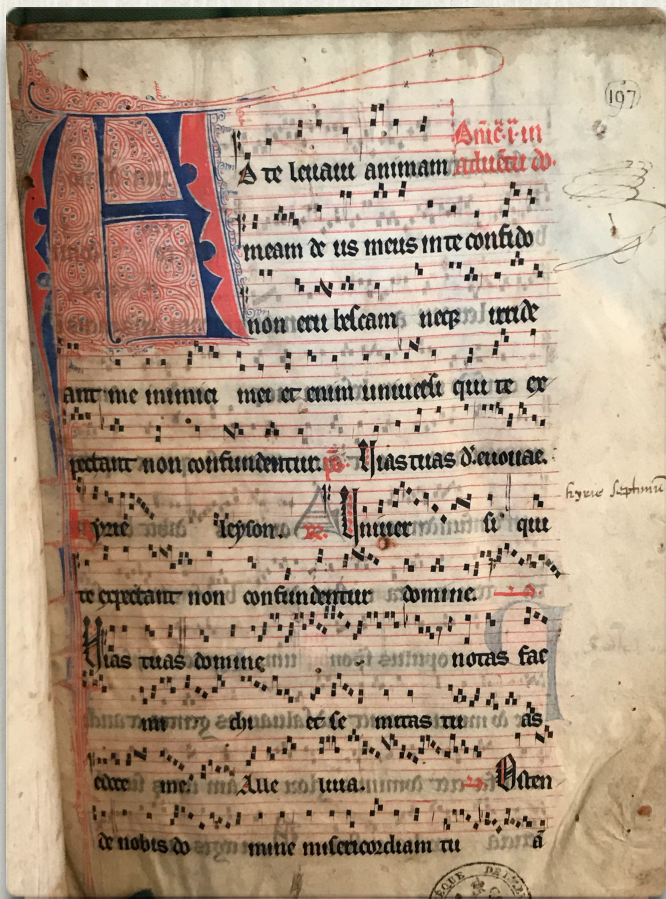 197
A te leuaui animam
meam de us meus in te confido
non eru bescam neq irride
ant me inimici mei et enim uniuersi qui te ex
pectant non confundentur. Vias tuas d. euouae.
kyrie septimũ
kyrie leyson. Vniuer si qui
te expectant non confundentur domine.
Vias tuas domine notas fac
mi chi et se mitas tu as
edoce me. Alle luia. Osten
de nobis do mine misericordiam tu ã